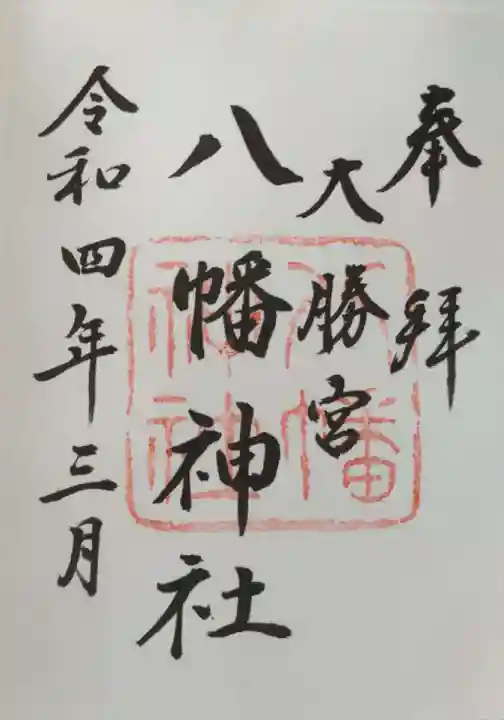 奉拝
大勝宮
八幡神社
令和四年三月
八幡
神社